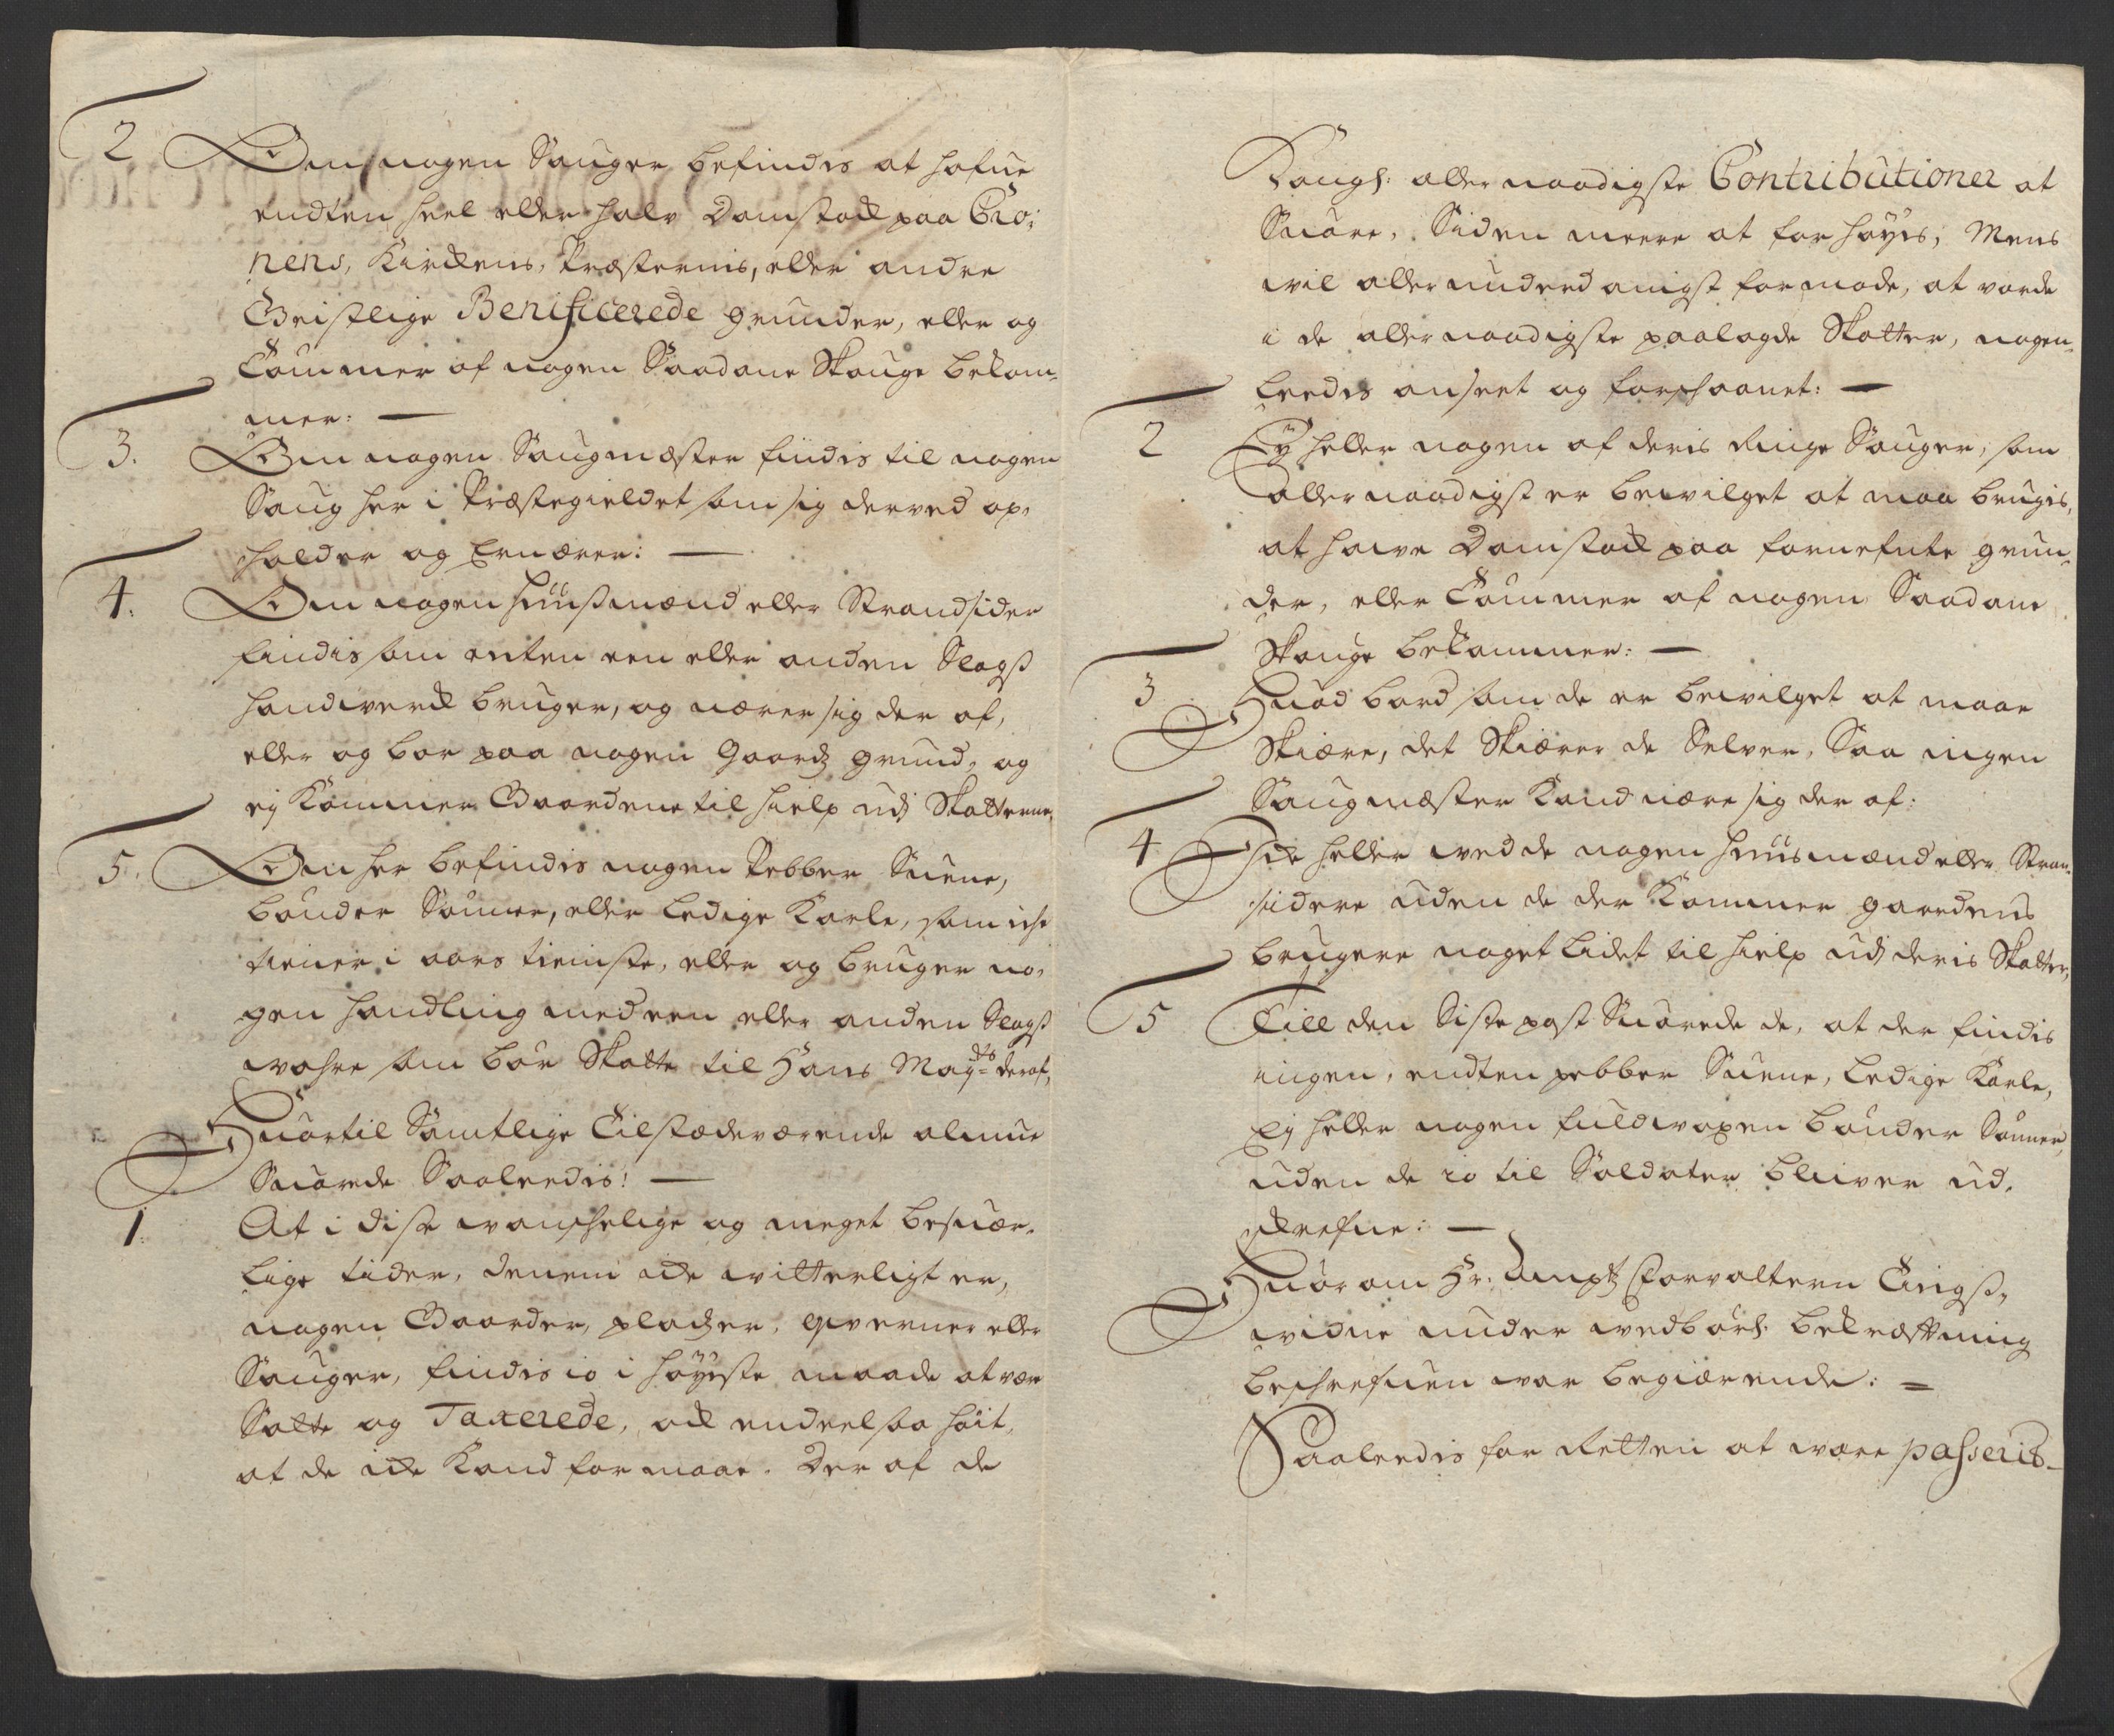 2 Om nogen Sauger befindis at hafue
endten heel eller halv Damstock paa Cro:
nens, Kirckens, Præsternis, eller andre
Geistlige Benificerede grunder, eller og
Tømmer af nogen Saadane Skouge bekom-
mer: —
3. Om nogen Saugmæster findis til nogen
Saug her i Præstegieldet som sig derved op-
holder og Ernærer: —
4. Om nogen Huusmænd eller Strandsider
findis som enten een eller anden Slags
Handtverck bruger, og nærer sig der af,
eller og boer paa nogen Gaards grund, og
ej Kommer Gaardene til hielp udj Skatterne,
5. Om her befindis nogen Pebber Suene,
bønder Sønner, eller Ledige Karle, som iche
tiener i aars tieniste, eller og bruger no-
gen Handling med een eller anden Slags
wahre som bør Skatte til Hans Mayts deraf,
Huortil Samtlige Tilstædeværende almue
Suarede Saaledis: —
1. At i dise wanschelige og meget besuær-
lige tider, dennem icke witterligt er,
nogen Gaarder, pladser, Qverner eller
Sauger, findis io i høyeste maade at vær
Satte og Taxerede, ock endeel saa høit,
at de icke Kand formaae. Der af de
Kongl: allernaadigste Contributioner at
Suare, Siden meere at forhøyes, Mens
wil allerunderdanigst formode, at vorde
i de allernaadigste paalagde Skatter, nogen-
leedis anseet og forschaanet: —
2 Ey heller nogen af deris Ringe Sauger, som
allernaadigst er bewilget at maa brugis,
at hawe Damstock paa fornefnte grun-
der, eller Tømmer af nogen Saadane
Skouge bekommer: —
3 Huad bord som de er bewilget at maae
Skiære, det Skiærer de Selver, Saa ingen
Saugmæster Kand nære sig der af:
4 Icke heller wed de nogen Huusmænd eller Stran-
sidere uden de der Kommer gaardens
brugere noget Lidet til hielp udj deris Skatter,
5 Till den Siste post Suarede de, at der findis
ingen, endten pebber Suene, Ledige Karle,
Ej heller nogen fuldwoxen bønder Sønner,
uden de io til Soldater bliiver ud-
skrefne: —
Huorom Hr: Ampts Forvalteren Tings-
widne under wedbørl: bekræftning
beskrefuen war begiærende: =
Saaledis for Retten at were passeris-